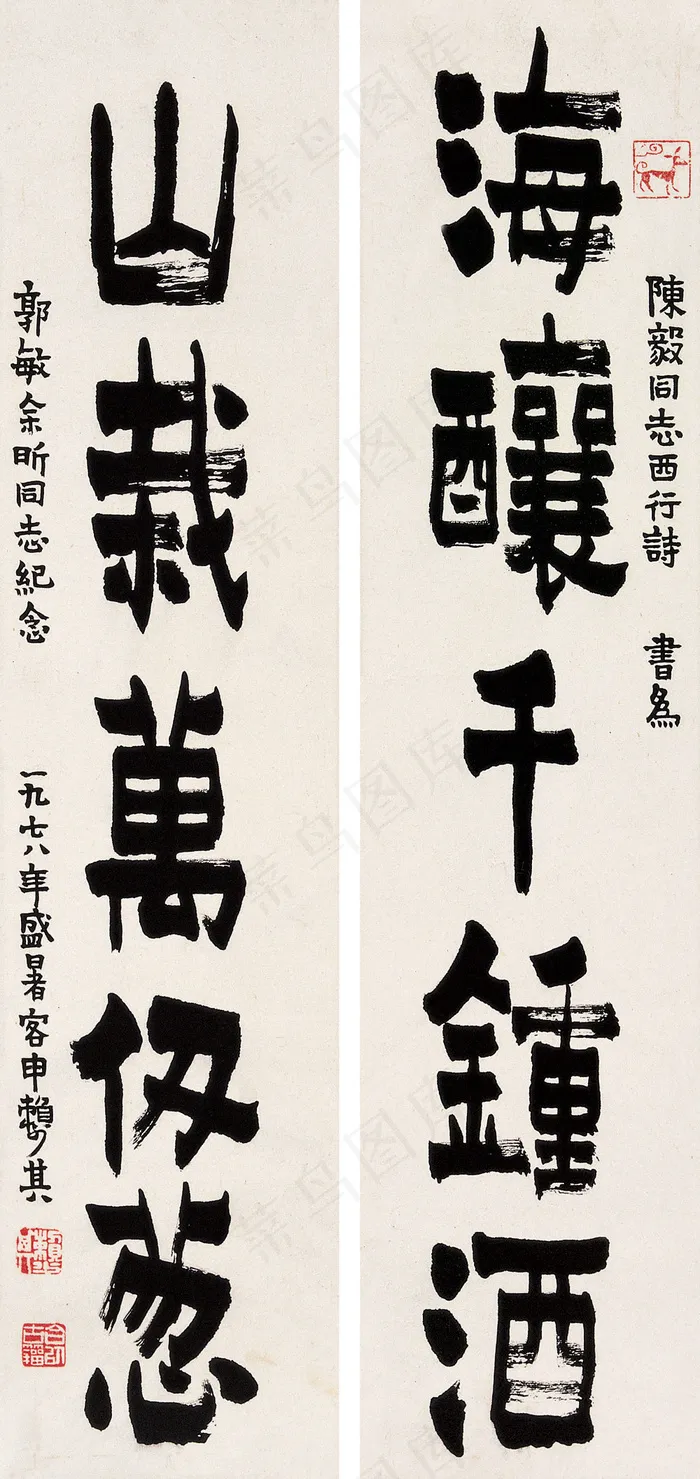 陳毅同志西行詩 書為
海釀千鍾酒
山栽萬仞葱
郭敏余昕同志紀念
一九七八年盛暑客申賴少其
菜鸟图库